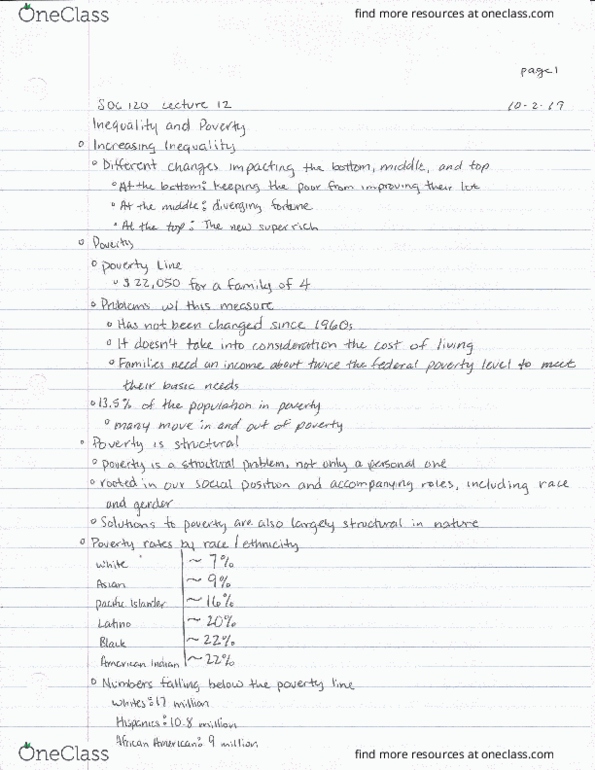 OneClass
find more resources at oneclass.com
page 1
SOC 120 Lecture 12
10-2-19
Inequality and Poverty
Increasing Inequality
Different changes impacting the bottom, middle, and top
At the bottom: keeping the poor from improving their lot
At the middle: diverging fortune
At the top: The new super rich
Poverty
poverty Line
$22,050 for a family of 4
Problems w/ this measure
Has not been changed since 1960s
It doesn't take into consideration the cost of living
Families need an income about twice the federal poverty level to meet
their basic needs
13.5% of the population in poverty
many move in and out of poverty
Poverty is structural
poverty is a structural problem, not only a personal one
rooted in our social position and accompanying roles, including race
and gender
Solutions to poverty are also largely structural in nature
Poverty rates by race/ethnicity
White ~ 7%
Asian ~ 9%
pacific Islander ~ 16%
Latino ~ 20%
Black ~ 22%
American Indian ~ 22%
Numbers falling below the poverty line
Whites: 17 million
Hispanics: 10.8 million
African American: 9 million
OneClass
find more resources at oneclass.com